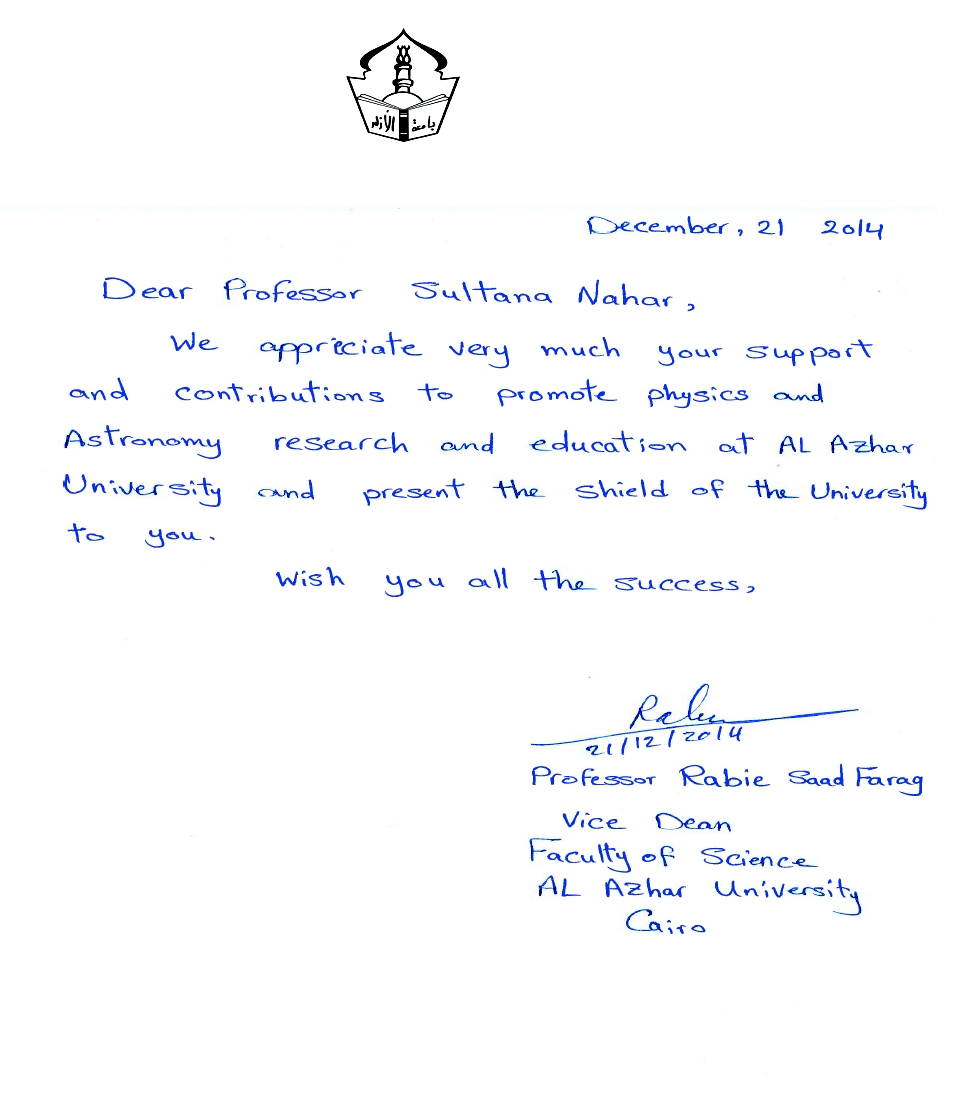 جامعة الأزهر
December, 21 2014
Dear Professor Sultana Nahar,
We appriciate very much your support
and contributions to promote physics and
Astronomy research and education at AL Azhar
University and present the shield of the University
to you.
Wish you all the success,
Rabie
21/12/2014
Professor Rabie Saad Farag
Vice Dean
Faculty of Science
AL Azhar University
Cairo